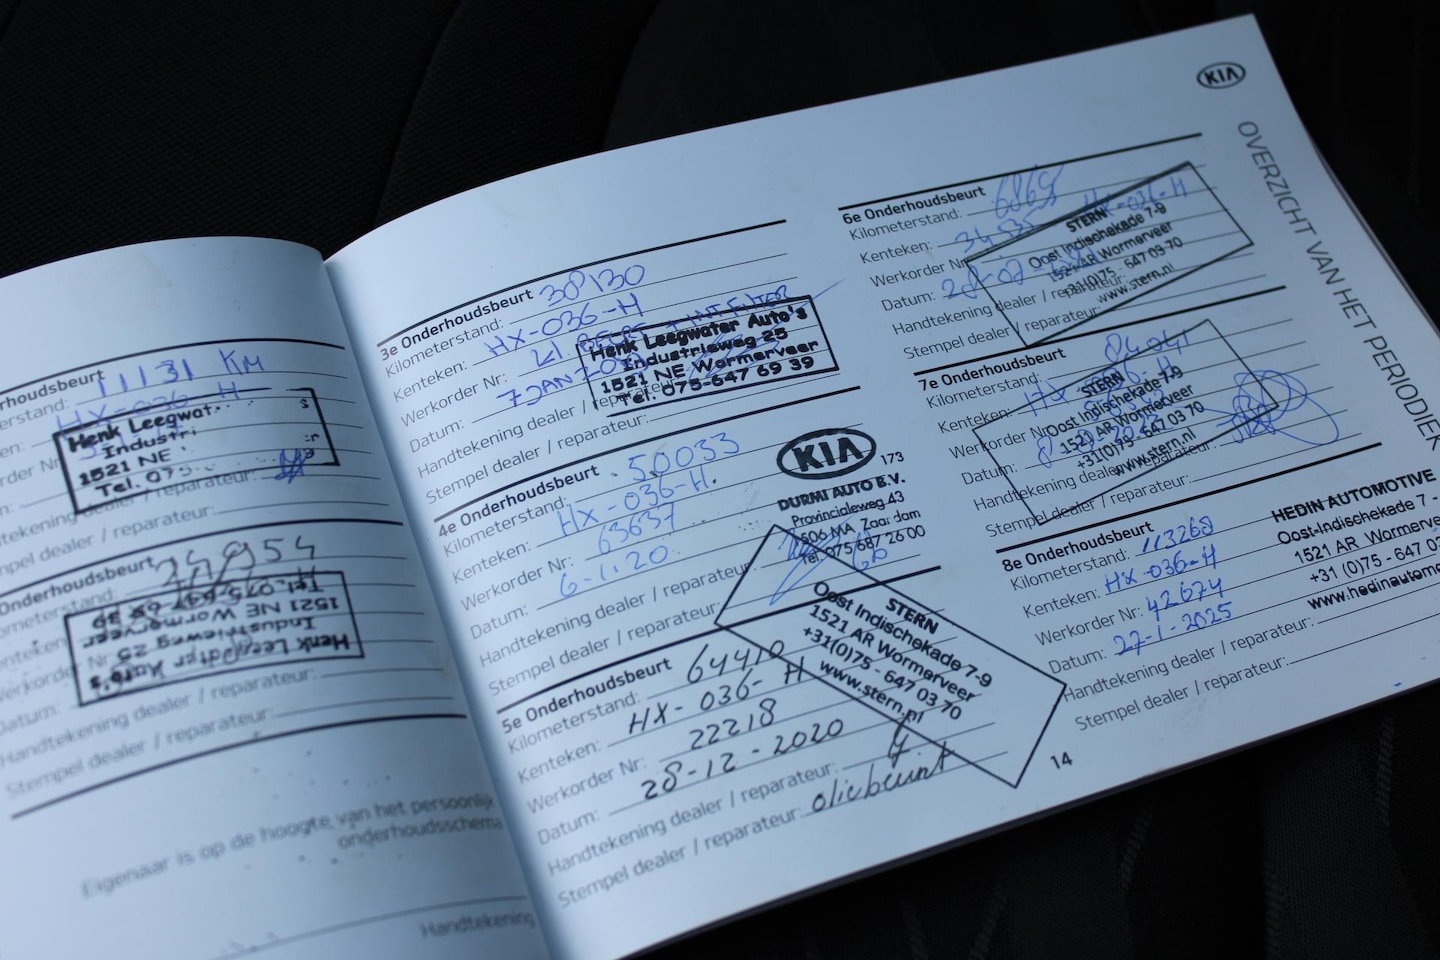 rhoudsbeurt
11131 KM
erstand:
HX-036 H
en:
Henk Leegwat
Industri
1521 NE
Tel. 075
reparateur:
pel dealer / reparateur:
Onderhoudsbeurt
Henk Leegwater Auto's
Industrieweg 25
1521 NE Wormerveer
Tel. 075-647 69 39
Datum:
Handtekening dealer / reparateur:
Stempel dealer / reparateur:
Eigenaar is op de hoogte van het persoonlijk
onderhoudsschema
Handtekening
3e Onderhoudsbeurt
Kilometerstand: 38130
Kenteken: HX-036-H
Werkorder Nr:
Datum: 7 JAN
Handtekening dealer / reparateur:
Stempel dealer / reparateur:
Henk Leegwater Auto's
Industrieweg 25
1521 NE Wormerveer
Tel. 075-647 69 39
4e Onderhoudsbeurt
Kilometerstand: 50033
Kenteken: HX-036-H.
Werkorder Nr: 63637
Datum: 6-1-20
Handtekening dealer / reparateur:
Stempel dealer / reparateur:
KIA 173
DURMI AUTO B.V.
Provincialeweg 43
1506 MA Zaandam
Tel. 075 687 26 00
5e Onderhoudsbeurt
Kilometerstand: 64410
Kenteken: HX-036-H
Werkorder Nr: 22218
Datum: 28-12-2020
Handtekening dealer / reparateur:
Stempel dealer / reparateur: oliebeurt
STERN
Oost Indischekade 7-9
1521 AR Wormerveer
+31(0)75 - 647 03 70
www.stern.nl
14
KIA
OVERZICHT VAN HET PERIODIEK
6e Onderhoudsbeurt
Kilometerstand:
Kenteken: HX-036-H
Werkorder Nr: 34535
Datum:
Handtekening dealer / reparateur:
Stempel dealer / reparateur:
STERN
Oost Indischekade 7-9
1521 AR Wormerveer
+31(0)75 - 647 03 70
www.stern.nl
7e Onderhoudsbeurt
Kilometerstand: 84041
Kenteken:
Werkorder Nr:
Datum:
Handtekening dealer / reparateur:
Stempel dealer / reparateur:
STERN
Oost Indischekade 7-9
1521 AR Wormerveer
+31(0)75 - 647 03 70
www.stern.nl
8e Onderhoudsbeurt
Kilometerstand: 113268
Kenteken: HX-036-H
Werkorder Nr: 42674
Datum: 27-1-2025
Handtekening dealer / reparateur:
Stempel dealer / reparateur:
HEDIN AUTOMOTIVE
Oost-Indischekade 7 -
1521 AR Wormerve
+31 (0)75 - 647 03
www.hedinautomo